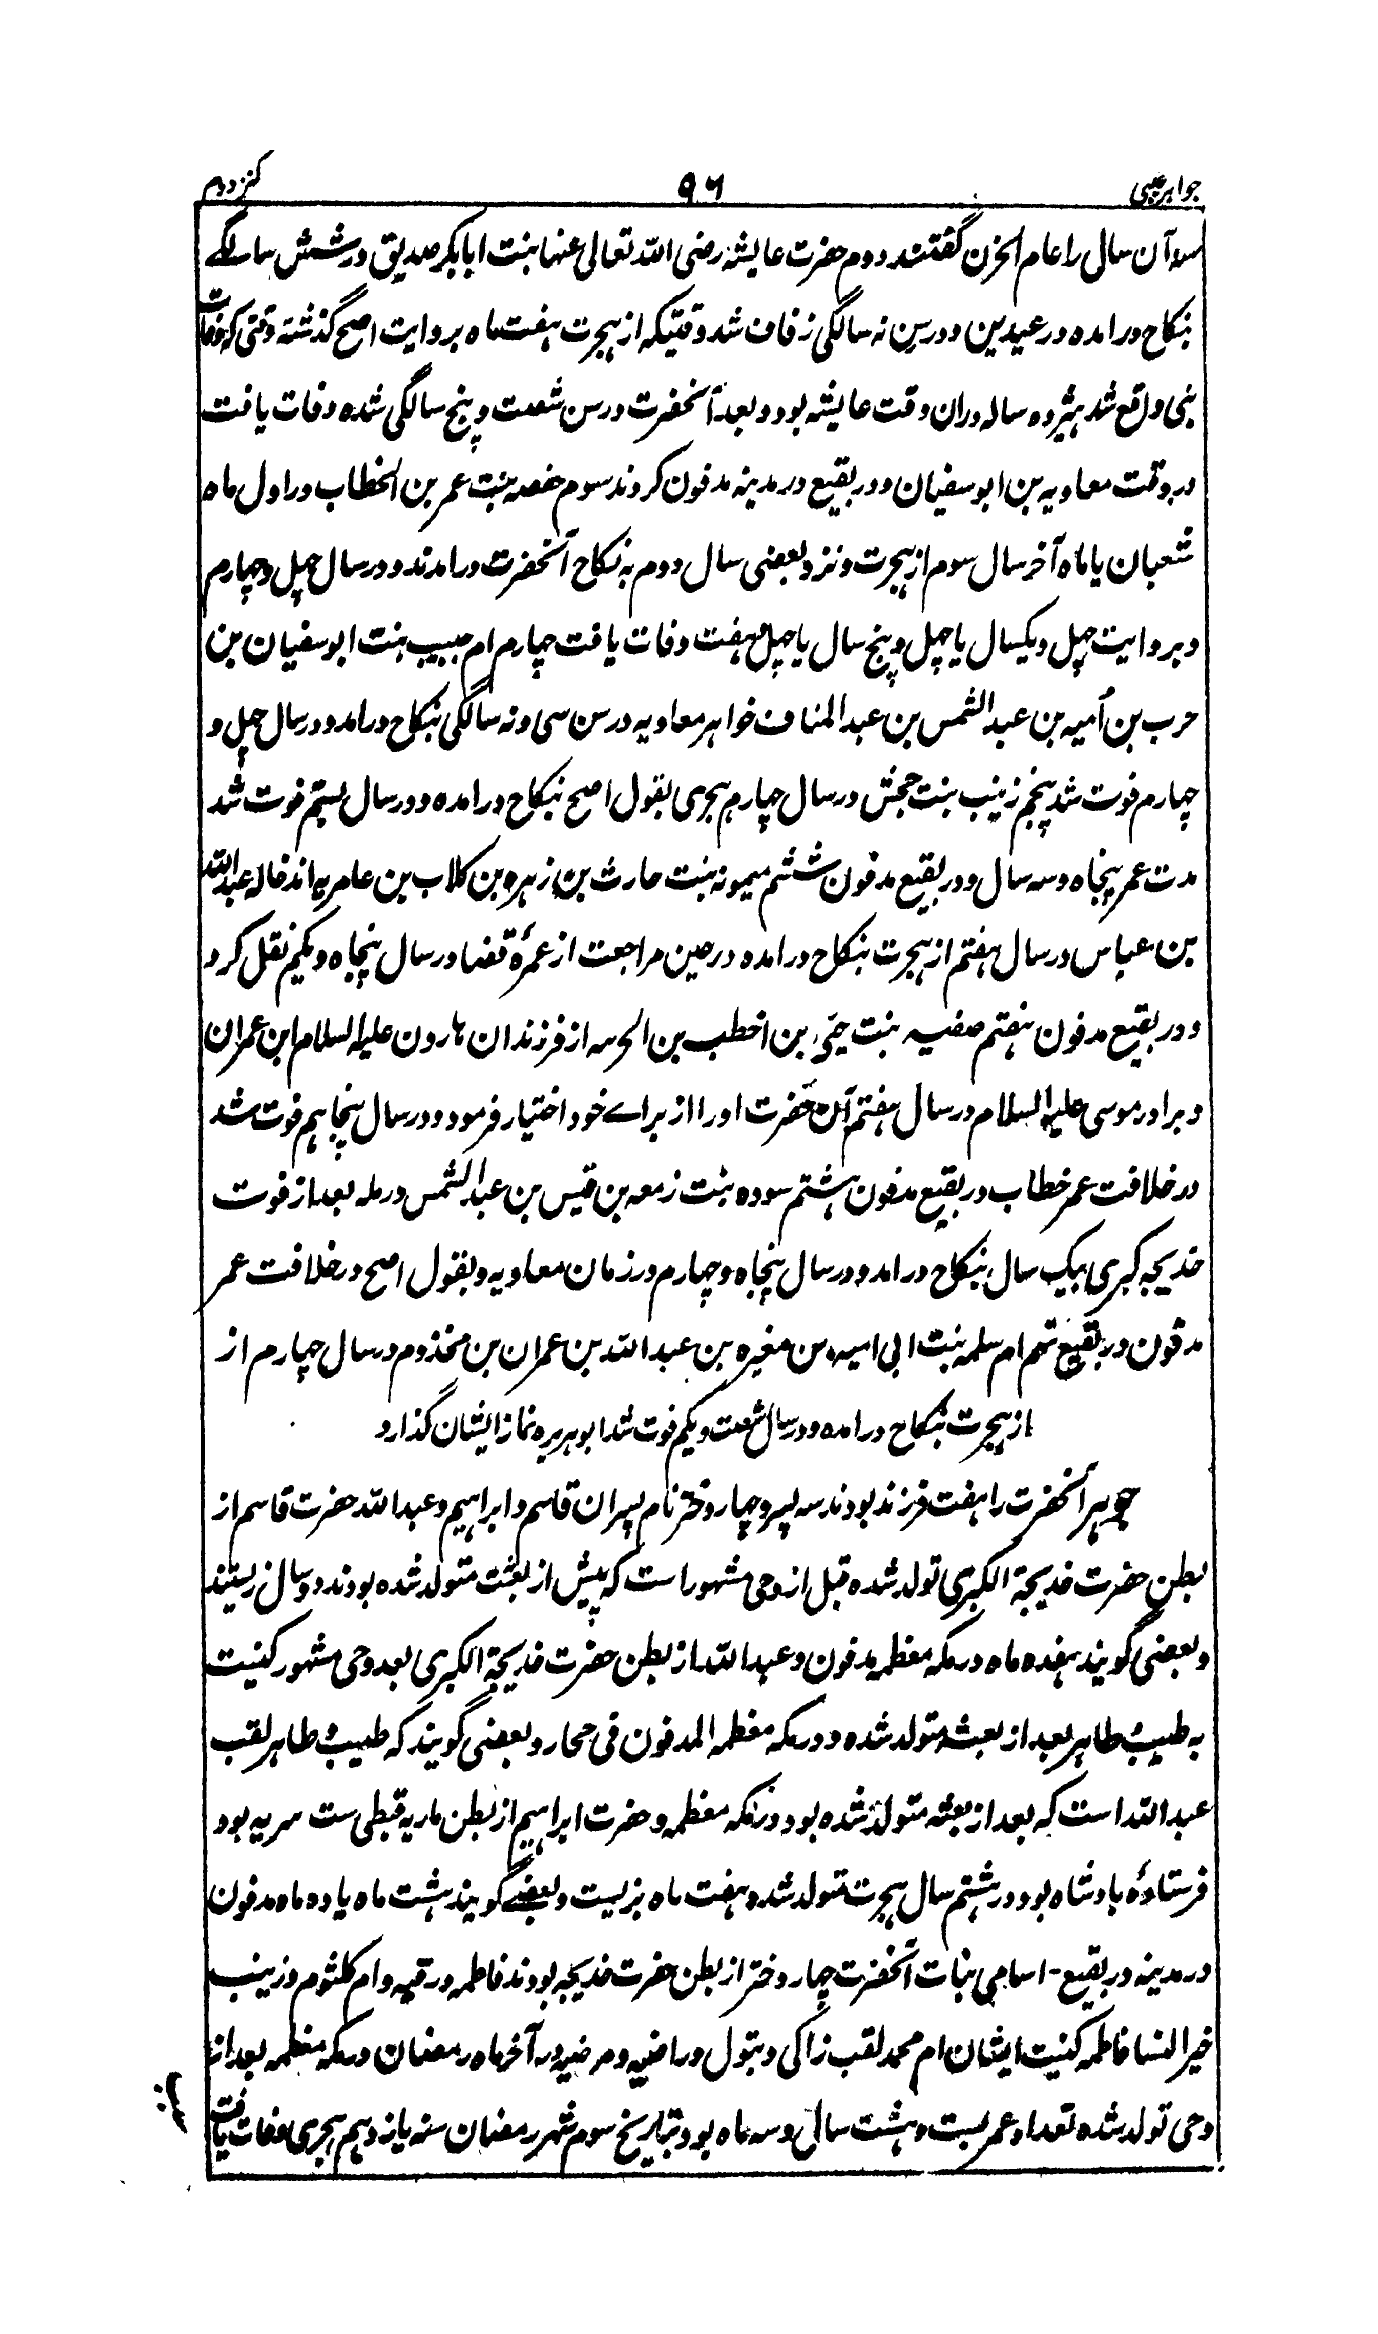 جواہر غیبی ٩٦ کنز دوم
سہ آن سال را عام الحزن گفتند دوم حضرت عایشہ رضی اللہ تعالی عنہا بنت ابابکر صدیق در شش سالگے
بنکاح درامدہ در عیدین و در سن نہ سالگی زفاف شد وقتیکہ از ہجرت ہفت ماہ بروایت اصح گذشتہ وقتی کہ وفات
نبی واقع شد ہژدہ سالہ دران وقت عایشہ بود و بعد آنحضرت در سن شصت و پنج سالگی شدہ وفات یافت
در وقت معاویہ بن ابو سفیان و در بقیع در مدینہ مدفون کردند سوم حفصہ بنت عمر بن الخطاب در اول ماہ
شعبان یا ماہ آخر سال سوم از ہجرت و نزد بعضی سال دوم بہ نکاح آنحضرت درامدند و در سال چہل و چہارم
و بروایت چہل و یکسال یا چہل و پنج سال یا چہل و ہفت وفات یافت چہارم ام حبیب بنت ابو سفیان بن
حرب بن اُمیہ بن عبد الشمس بن عبد المناف خواہر معاویہ در سن سی و نہ سالگی بنکاح درامد و در سال چہل و
چہارم فوت شد پنجم زینب بنت حجش در سال چہارم ہجری بقول اصح بنکاح درامدہ و در سال بستم فوت شد
مدت عمر پنجاہ و سہ سال و در بقیع مدفون ششم میمونہ بنت حارث بن زہرہ بن کلاب بن عامریہ اند خالہ عبد اللہ
بن عباس در سال ہفتم از ہجرت بنکاح درامدہ در حین مراجعت از عمرۂ قضا در سال پنجاہ و یکم نقل کرد
و در بقیع مدفون ہفتم صفیہ بنت حیَی بن اخطب بن الحرسہ از فرزندان ہارون علیہ السلام ابن عمران
و برادر موسی علیہ السلام در سال ہفتم آن حضرت او را از براے خود اختیار فرمود و در سال پنجاہم فوت شد
در خلافت عمر خطاب در بقیع مدفون ہشتم سودہ بنت زمعہ بن قیس بن عبد الشمس در ملہ بعد از فوت
خدیجہ کبری بیک سال بنکاح درامد و در سال پنجاہ و چہارم در زمان معاویہ و بقول اصح در خلافت عمر
مدفون در بقیع نہم ام سلمہ بنت ابی امیہ بن مغیرہ بن عبد اللہ بن عمران بن مخذوم در سال چہارم از
از ہجرت بنکاح درامدہ و در سال شصت و یکم فوت شد ابو ہریرہ نماز ایشان گذارد
جوہر آنحضرت را ہفت فرزند بودند سہ پسر و چہار دختر نام پسران قاسم و ابراہیم و عبد اللہ حضرت قاسم از
بطن حضرت خدیجۃ الکبری تولد شدہ قبل از وحی مشہور است کہ پیش از بعثت متولد شدہ بودند دو سال زیستند
و بعضی گویند ہفدہ ماہ در مکہ معظمہ مدفون و عبد اللہ از بطن حضرت خدیجۃ الکبری بعد وحی مشہور کنیت
بہ طیب و طاہر بعد از بعثہ متولد شدہ و در مکہ معظمہ المدفون فی محار و بعضی گویند کہ طیب و طاہر لقب
عبد اللہ است کہ بعد از بعثہ متولد شدہ بود در مکہ معظمہ و حضرت ابراہیم از بطن ماریہ قبطی ست سریہ بود
فرستادۂ بادشاہ بود در ہشتم سال ہجرت متولد شد و ہفت ماہ بزیست و بعضے گویند ہشت ماہ یا دہ ماہ مدفون
در مدینہ در بقیع - اسامی بنات آنحضرت چہار دختر از بطن حضرت خدیجہ بودند فاطمہ و رقیہ و ام کلثوم و زینب
خیر النسا فاطمہ کنیت ایشان ام محمد لقب زاکی و بتول و راضیہ و مرضیہ در آخر ماہ رمضان در مکہ معظمہ بعد از
وحی تولد شدہ تعداد عمر بست و ہشت سال و سہ ماہ بود بتاریخ سوم شہر رمضان سنہ یازدہم ہجری وفات یافت